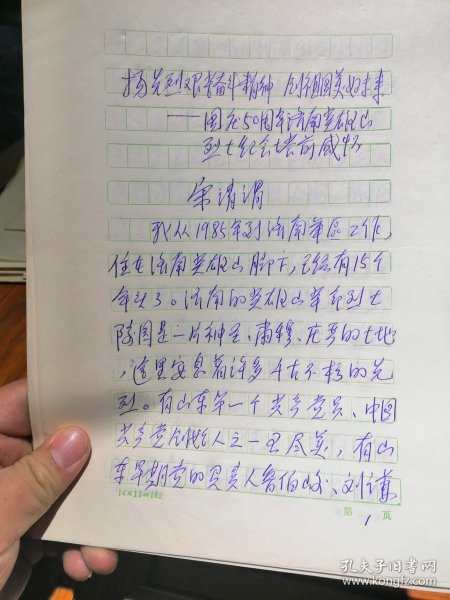 扬先烈艰苦奋斗精神 创祖国美好未来
——国庆50周年济南英雄山
烈士纪念堂前感怀
宋清渭
我从1985年到济南军区工作,
住在济南英雄山脚下,已经有15个
年头了。济南的英雄山革命烈士
陵园是一片神圣、肃穆、庄严的土地
,这里安息着许多千古不朽的先
烈。有山东第一个共产党员、中国
共产党创始人之一王尽美,有山
东早期党的负责人鲁伯峻、刘谦
14×13=182
第 1 页
孔夫子旧书网
www.kongfz.com